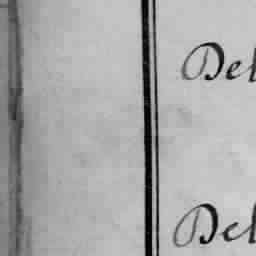 Del
Del